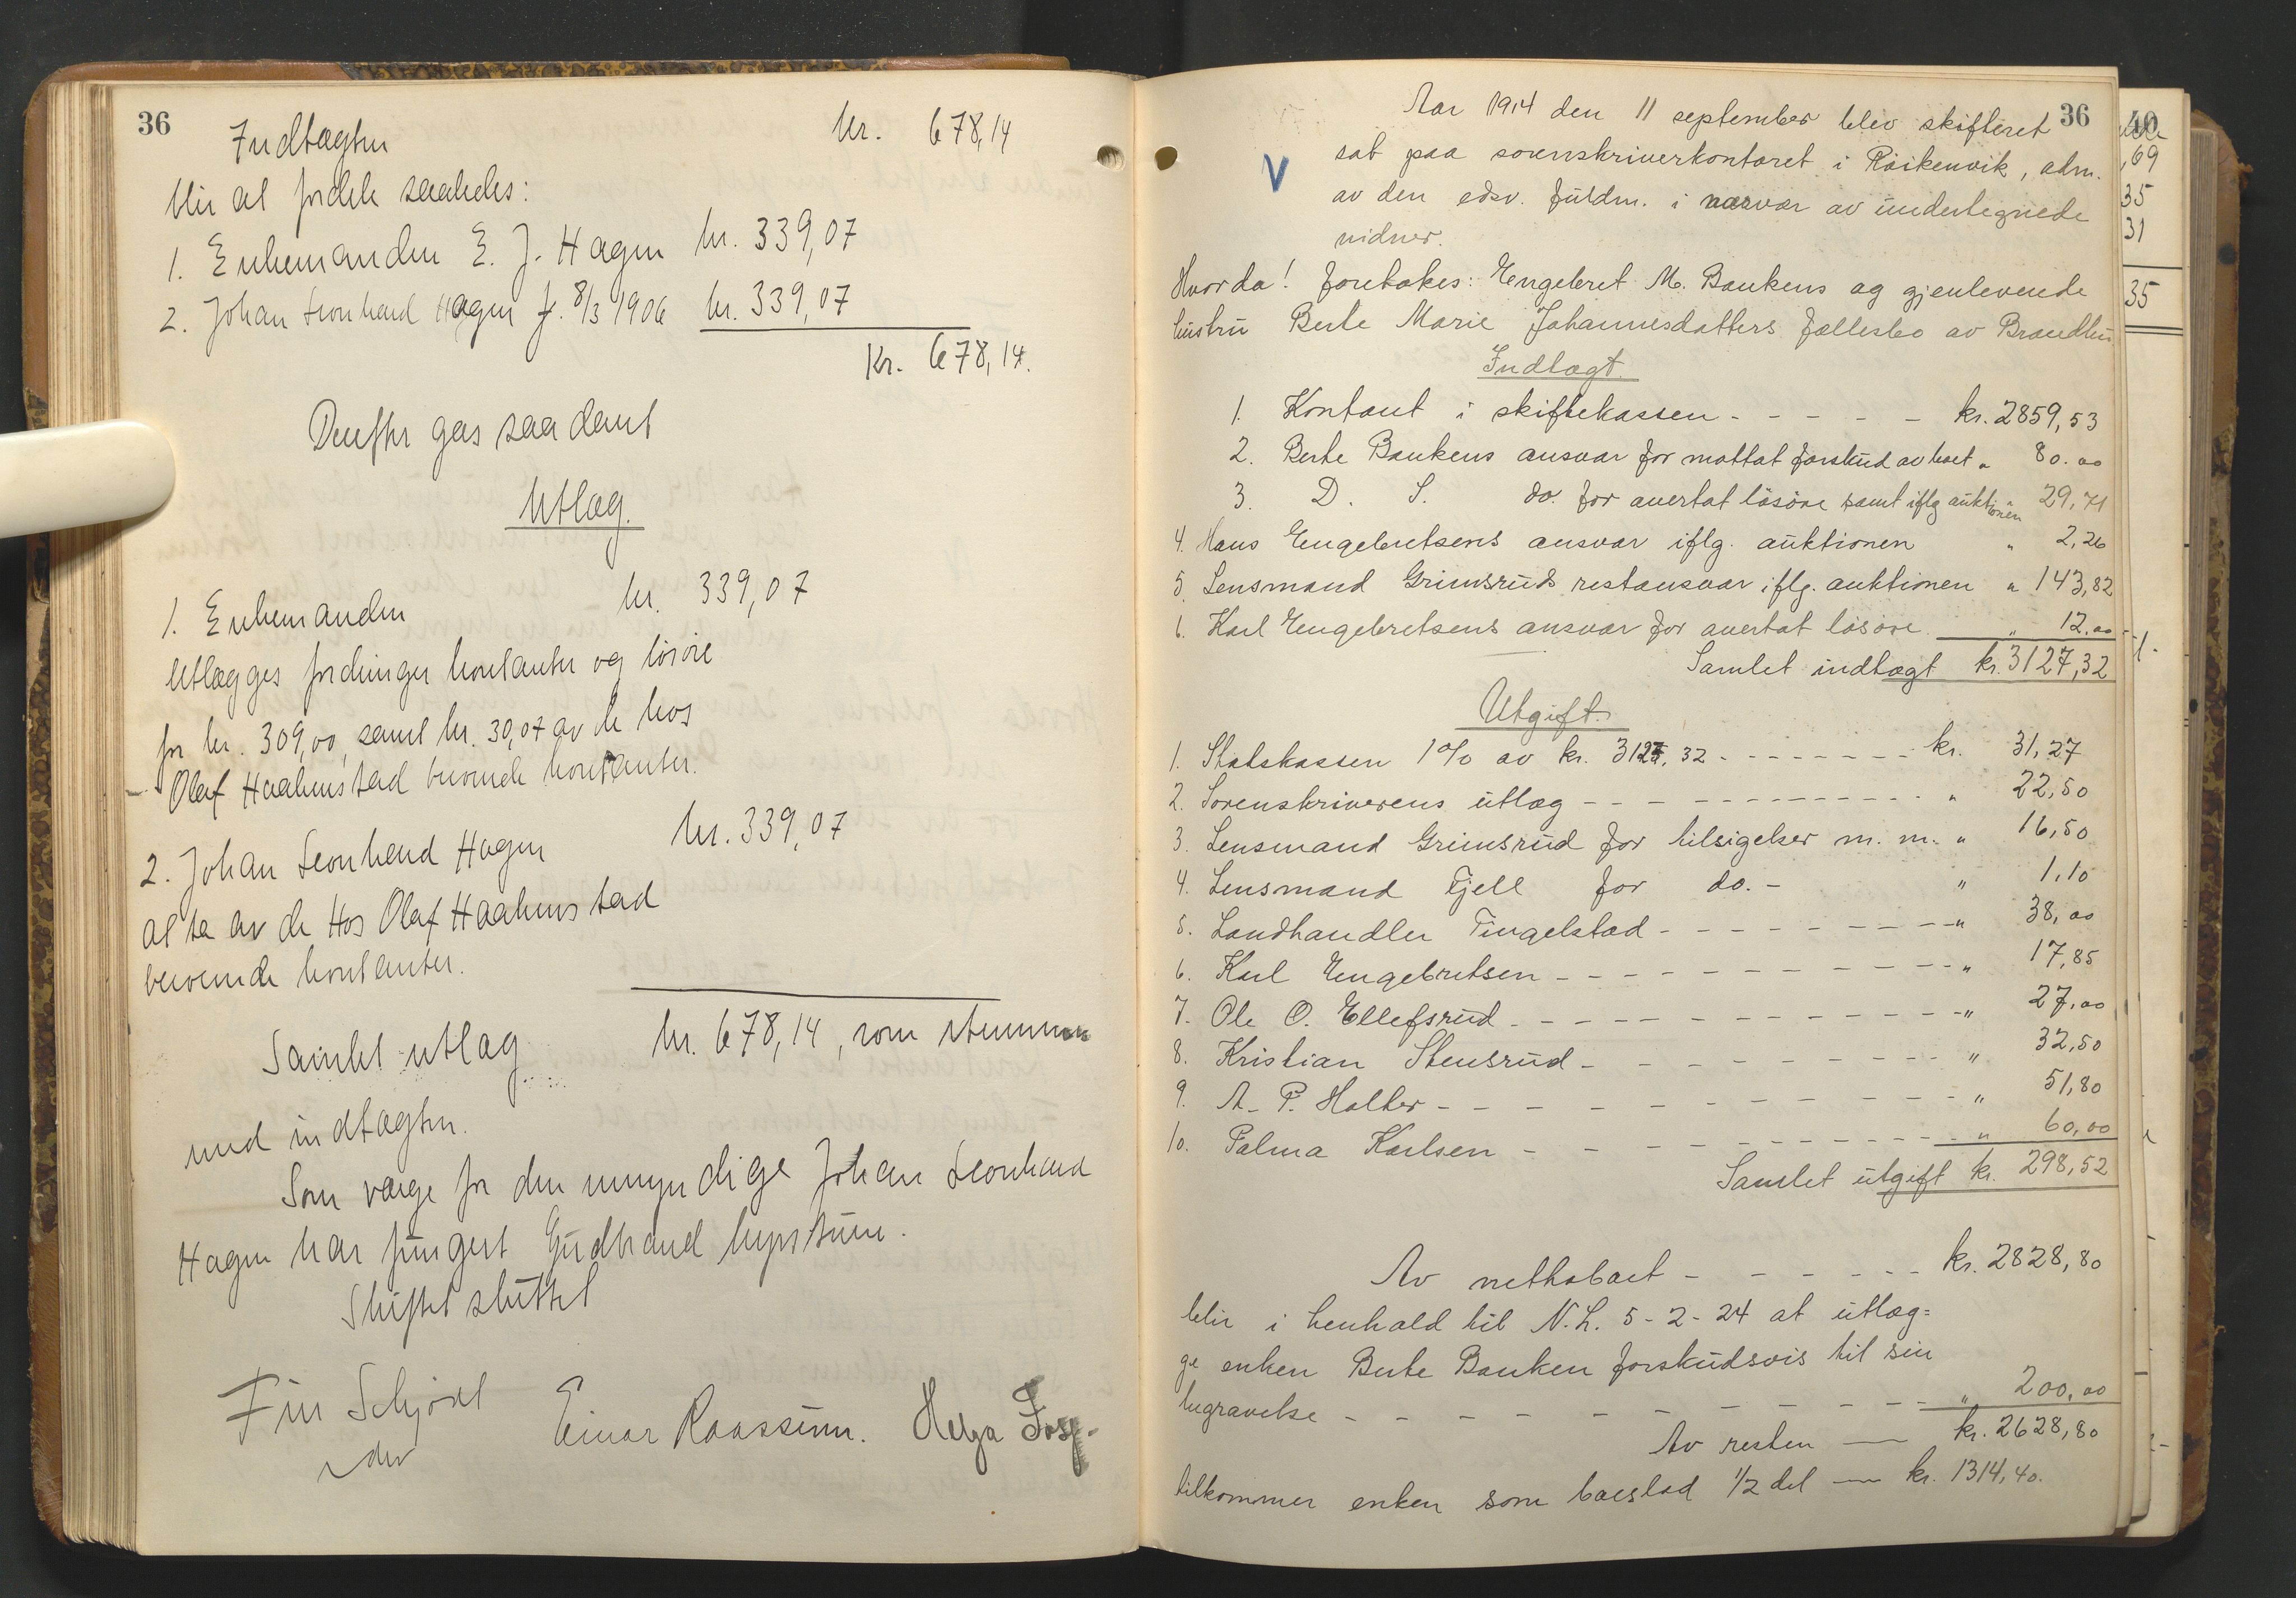 36
Indtægten kr. 678,14
blir at fordele saaledes:
1. Enkemanden E. J. Hagen kr. 339,07
2. Johan Leonhard Hagen f. 8/3 1906 kr. 339,07
Kr. 678,14.
Derefter gas saadant
Utlæg.
1. Enkemanden kr. 339,07
Utlægges fordringer kontanter og lösöre
for kr. 309,00, samt kr. 30,07 av de hos
Olaf Haakenstad beroende kontanter.
2. Johan Leonhard Hagen kr. 339,07
at ta av de Hos Olaf Haakenstad
beroende kontanter.
Samlet utlæg kr. 678,14, som stemmer
med indtægten.
Som værge for den umyndige Johan Leonhard
Hagen har fungert Gudbrand
Skiftet sluttet
Schjödt
Einar Raassum. Helga
36
Aar 1914 den 11 september blev skifteret
sat paa sorenskriverkontoret i Röikenvik, adm.
av den edsv. fuldm. i nærvær av undertegnede
vidner.
V
Hvorda! foretokes: Engebret M. Bankens og gjenlevende
hustru Berte Marie Johannesdatters fællesbo av Brandbu
Indtægt.
1. Kontant i skiftekassen - - - - - kr. 2859,53
2. Berte Bankens ansvar for mottat forskud av boet " 80.00
3. D. S. do. for overtat lösöre samt iflg auktionen " 29,71
4. Hans Engebretsens ansvar iflg. auktionen " 2,26
5. Lensmand Grimsruds restansvar iflg. auktionen " 143,82
6. Karl Engebretsens ansvar for overtat lösöre " 12.00
Samlet indtægt kr. 3127,32
Utgift.
1. Statskassen 1% av kr. 3127,32 - - - - - - - kr. 31,27
2. Sorenskriverens utlæg - - - - - - - - - - " 22,50
3. Lensmand Grimsrud for tilsigelser m. m. " 16,50
4. Lensmand Fjell for do. - " 1,10
5. Landhandler Tingelstad - - - - - - - - - " 38,00
6. Karl Engebretsen - - - - - - - - - - " 17,85
7. Ole O. Ellefsrud - - - - - - - - - - - " 27.00
8. Kristian Stensrud - - - - - - - - " 32,50
9. A. P. Holter - - - - - - - - - - - " 51,80
10. Palma Karlsen - - - - - - - - - " 60,00
Samlet utgift kr. 298,52
Av nettoboet - - - - - - kr. 2828,80
blir i henhold til N. L. 5-2-24 at utlæg=
ge enken Berte Banken forskudsvis til sin
begravelse - - - - - - - - - - - " 200,00
Av resten — kr. 2628,80
tilkommer enken som boeslod 1/2 del — kr. 1314,40.
40
69
35
31
35